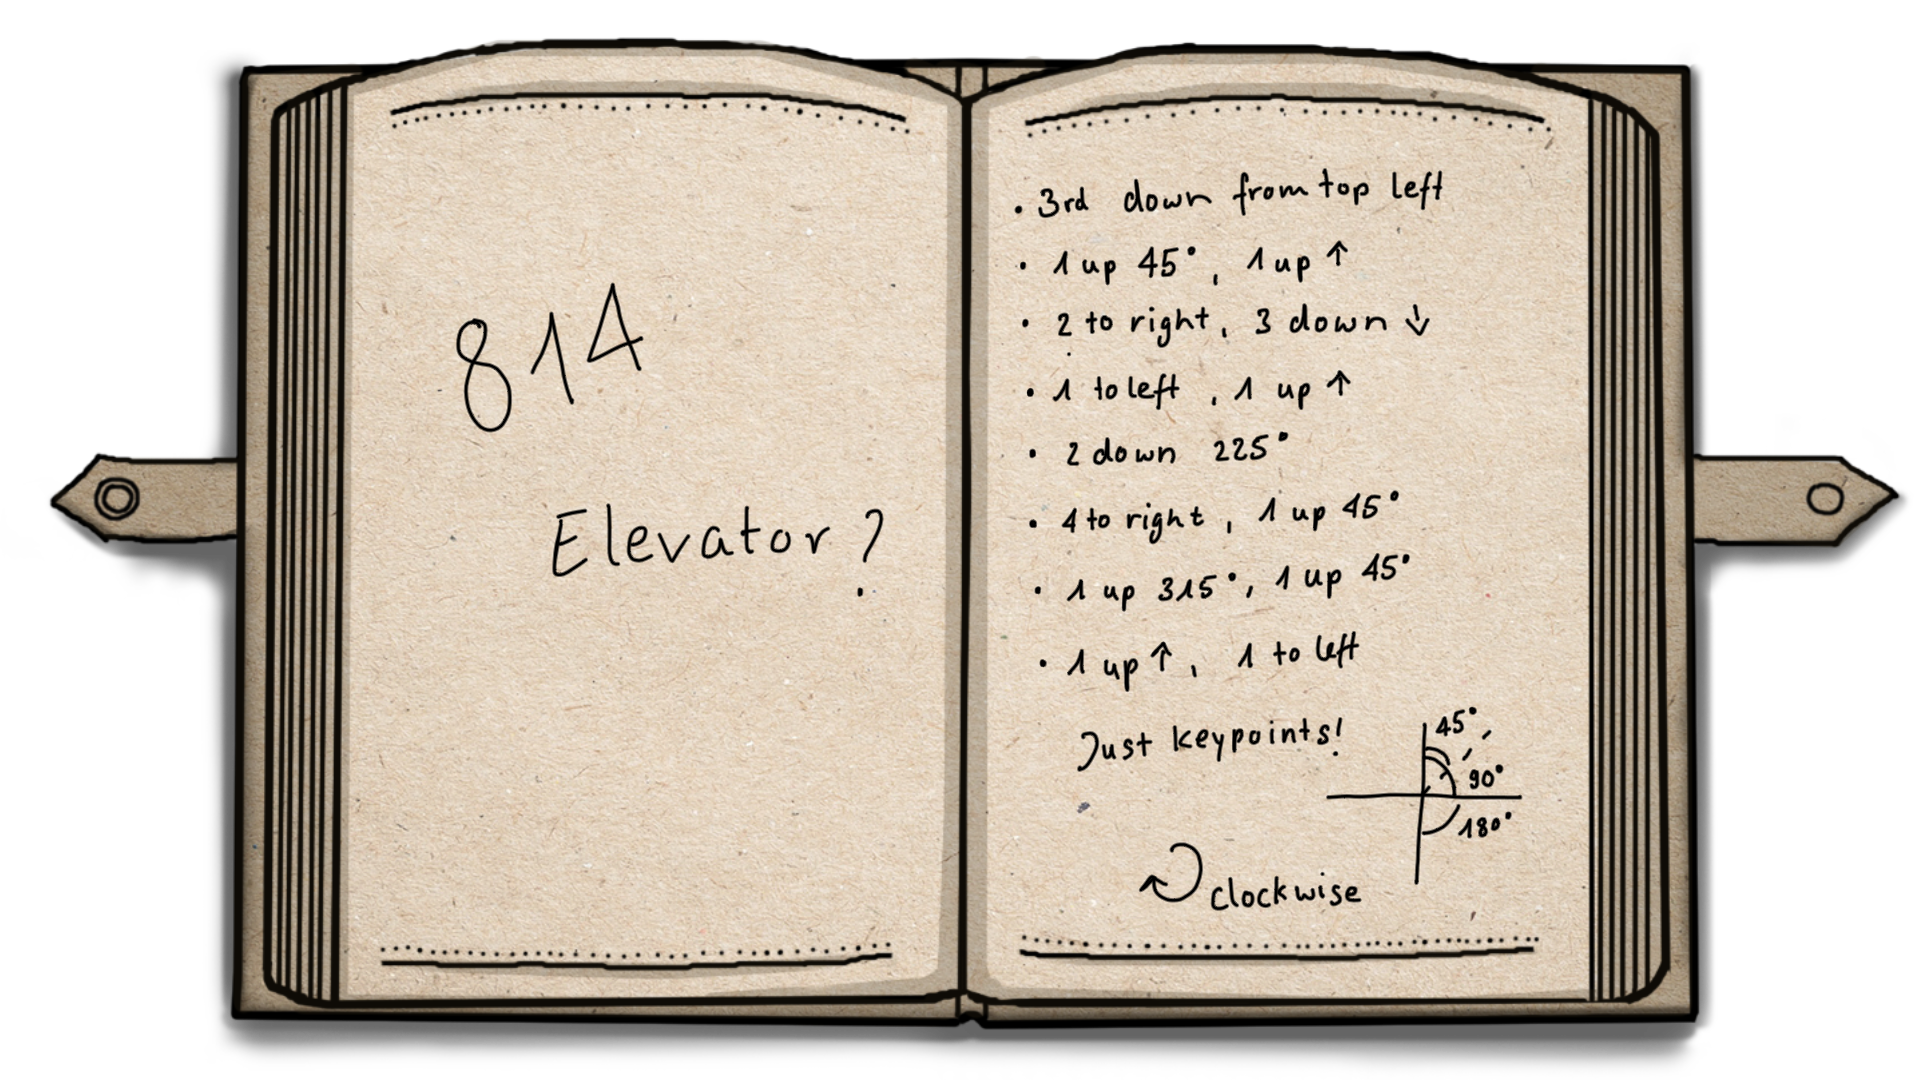 814
Elevator?
• 3rd down from top left
• 1 up 45°, 1 up ↑
• 2 to right, 3 down ↓
• 1 to left, 1 up ↑
• 2 down 225°
• 4 to right, 1 up 45°
• 1 up 315°, 1 up 45°
• 1 up ↑, 1 to left
Just keypoints!
45°
90°
180°
clockwise